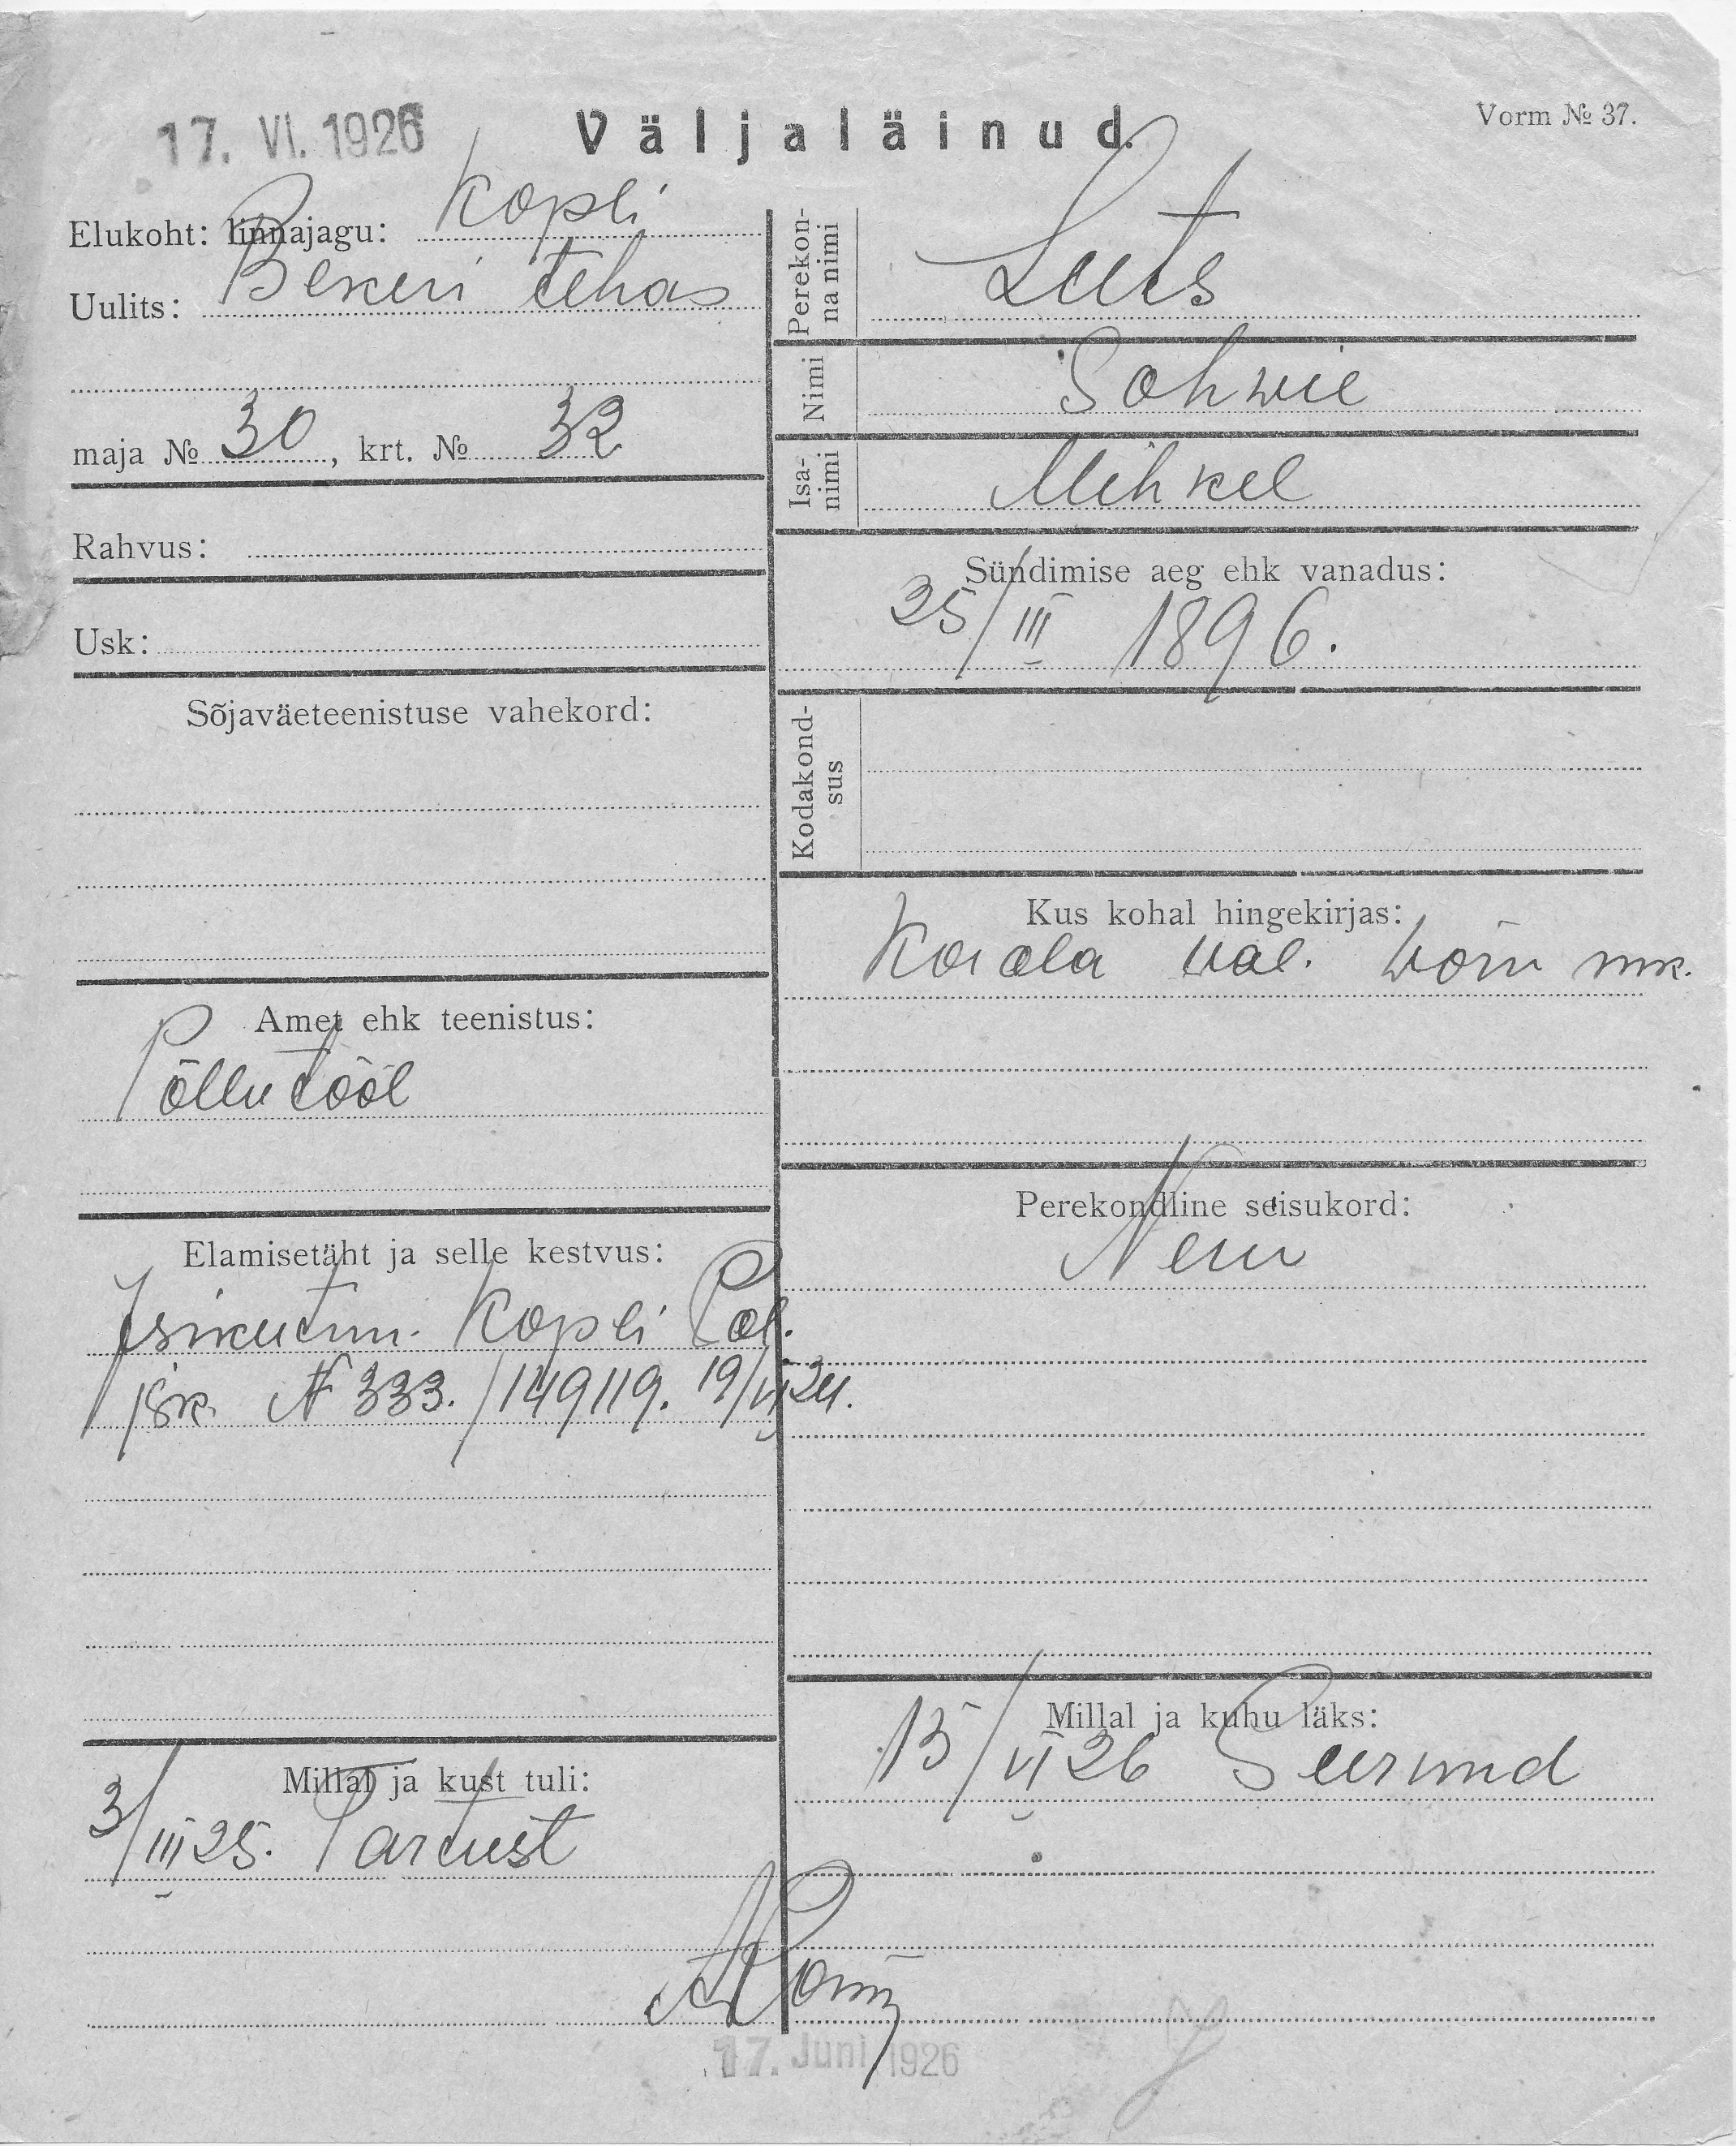 17. VI. 1926
Väljaläinud.
Vorm № 37.
Elukoht: linnajagu: Kopli
Uulits: Bekeri tehas
maja № 30, krt. № 32
Rahvus:
Usk:
Sõjaväeteenistuse vahekord:
Amet ehk teenistus:
Põllutööl
Elamisetäht ja selle kestvus:
Isikutun. Kopli Pol.
jsk. № 333./149119. 19/VI 24.
Millal ja kust tuli:
3/III 25. Tartust
Perekon-
na nimi
Luts
Nimi
Sohwie
Isa-
nimi
Mihkel
Sündimise aeg ehk vanadus:
25/III 1896.
Kodakond-
sus
Kus kohal hingekirjas:
Koiola wal. Wõru mk.
Perekondline seisukord:
Neiu
Millal ja kuhu läks:
15/VI 26
17. Juni 1926